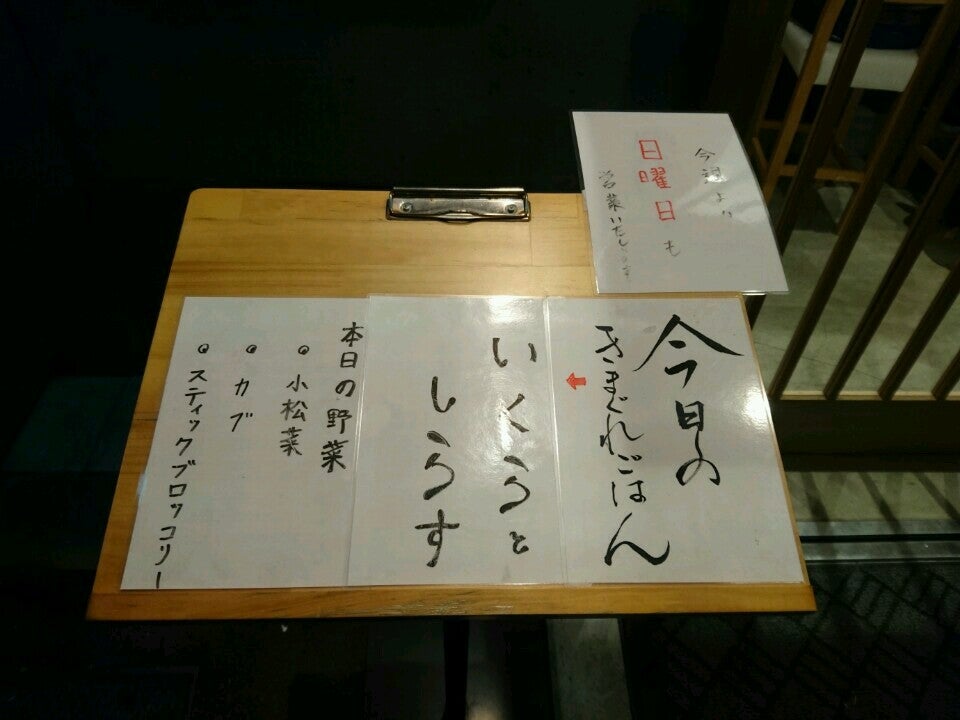 今週より
日曜日も
営業いたします
今日の
きまぐれごはん
いくらと
しらす
本日の野菜
◎小松菜
◎カブ
◎スティックブロッコリー